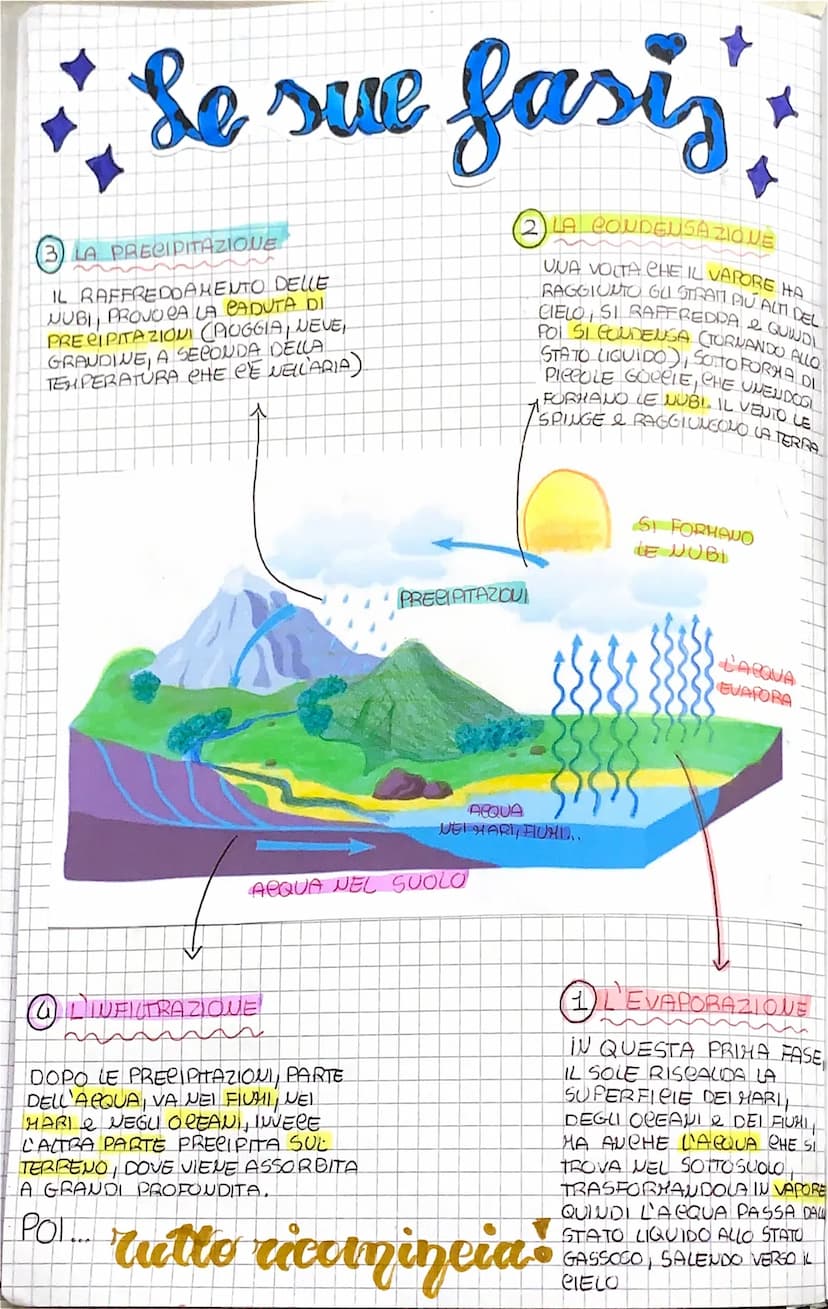 Le sue fasi
③ LA PRECIPITAZIONE
IL RAFFREDDAMENTO DELLE
NUBI, PROVOCA LA CADUTA DI
PRECIPITAZIONI (PIOGGIA, NEVE,
GRANDINE, A SECONDA DELLA
TEMPERATURA CHE C'È NELL'ARIA)
② LA CONDENSAZIONE
UNA VOLTA CHE IL VAPORE HA
RAGGIUNTO GLI STRATI PIÙ ALTI DEL
CIELO, SI RAFFREDDA e QUINDI
POI SI CONDENSA (TORNANDO ALLO
STATO LIQUIDO), SOTTO FORMA DI
PICCOLE GOCCIE, CHE UNENDOSI
FORMANO LE NUBI. IL VENTO LE
SPINGE e RAGGIUNGONO LA TERRA
SI FORMANO
LE NUBI
PRECIPITAZIONI
L'ACQUA
EVAPORA
ACQUA
NEI MARI, FIUMI..
ACQUA NEL SUOLO
④ L'INFILTRAZIONE
DOPO LE PRECIPITAZIONI, PARTE
DELL'ACQUA, VA NEI FIUMI, NEI
MARI e NEGLI OCEANI, INVECE
L'ALTRA PARTE PRECIPITA SUL
TERRENO, DOVE VIENE ASSORBITA
A GRANDI PROFONDITA.
POI... tutto ricomincia!
① L'EVAPORAZIONE
IN QUESTA PRIMA FASE,
IL SOLE RISCALDA LA
SUPERFICIE DEI MARI,
DEGLI OCEANI e DEI FIUMI,
MA ANCHE L'ACQUA CHE SI
TROVA NEL SOTTOSUOLO,
TRASFORMANDOLA IN VAPORE
QUINDI L'ACQUA PASSA DALLO
STATO LIQUIDO ALLO STATO
GASSOSO, SALENDO VERSO IL
CIELO